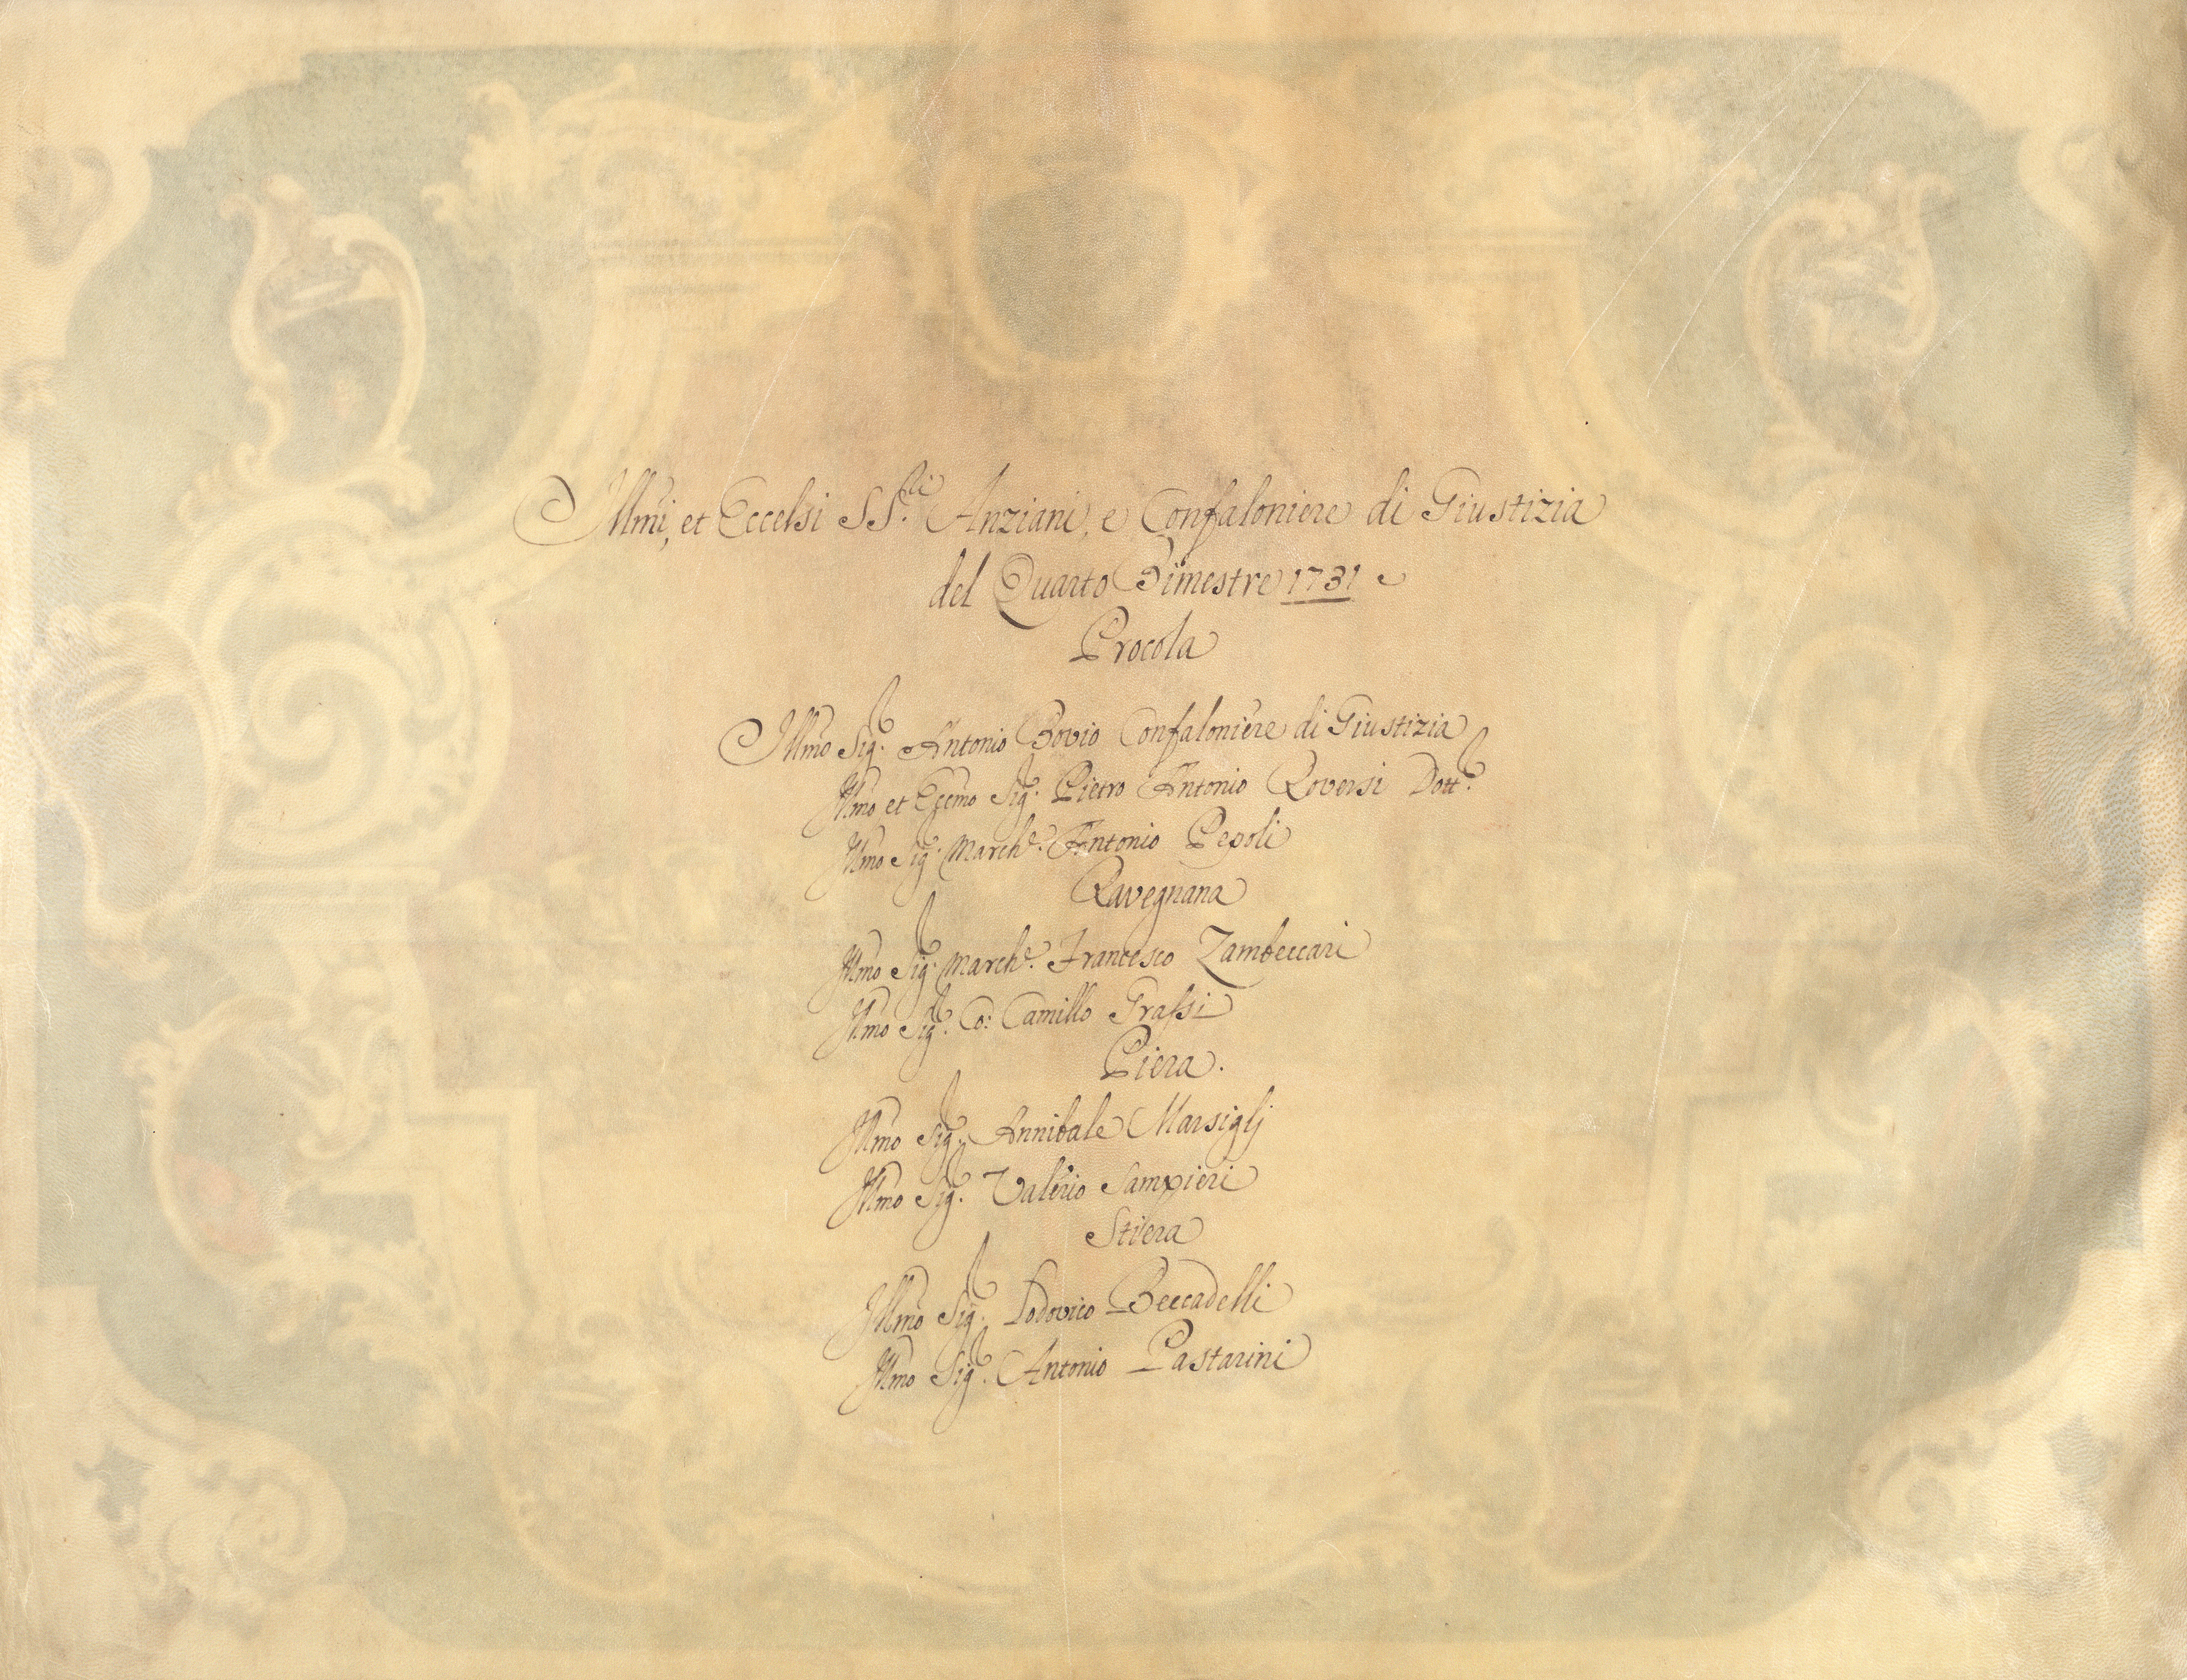 Illmi, et Eccelsi SS.ri Anziani, e Confaloniere di Giustizia
del Quarto Bimestre 1731
Procola
Illmo Sig. Antonio Bovio Confaloniere di Giustizia
Illmo et Eccmo Sig. Pietro Antonio Roversi Dott.
Illmo Sig. March.e Antonio Pepoli
Ravegnana
Illmo Sig. March.e Francesco Zambeccari
Illmo Sig. Co: Camillo Grassi
Piera.
Illmo Sig. Annibale Marsiglj
Illmo Sig. Valerio Sampieri
Stiera
Illmo Sig. Lodovico Beccadelli
Illmo Sig. Antonio Pastarini